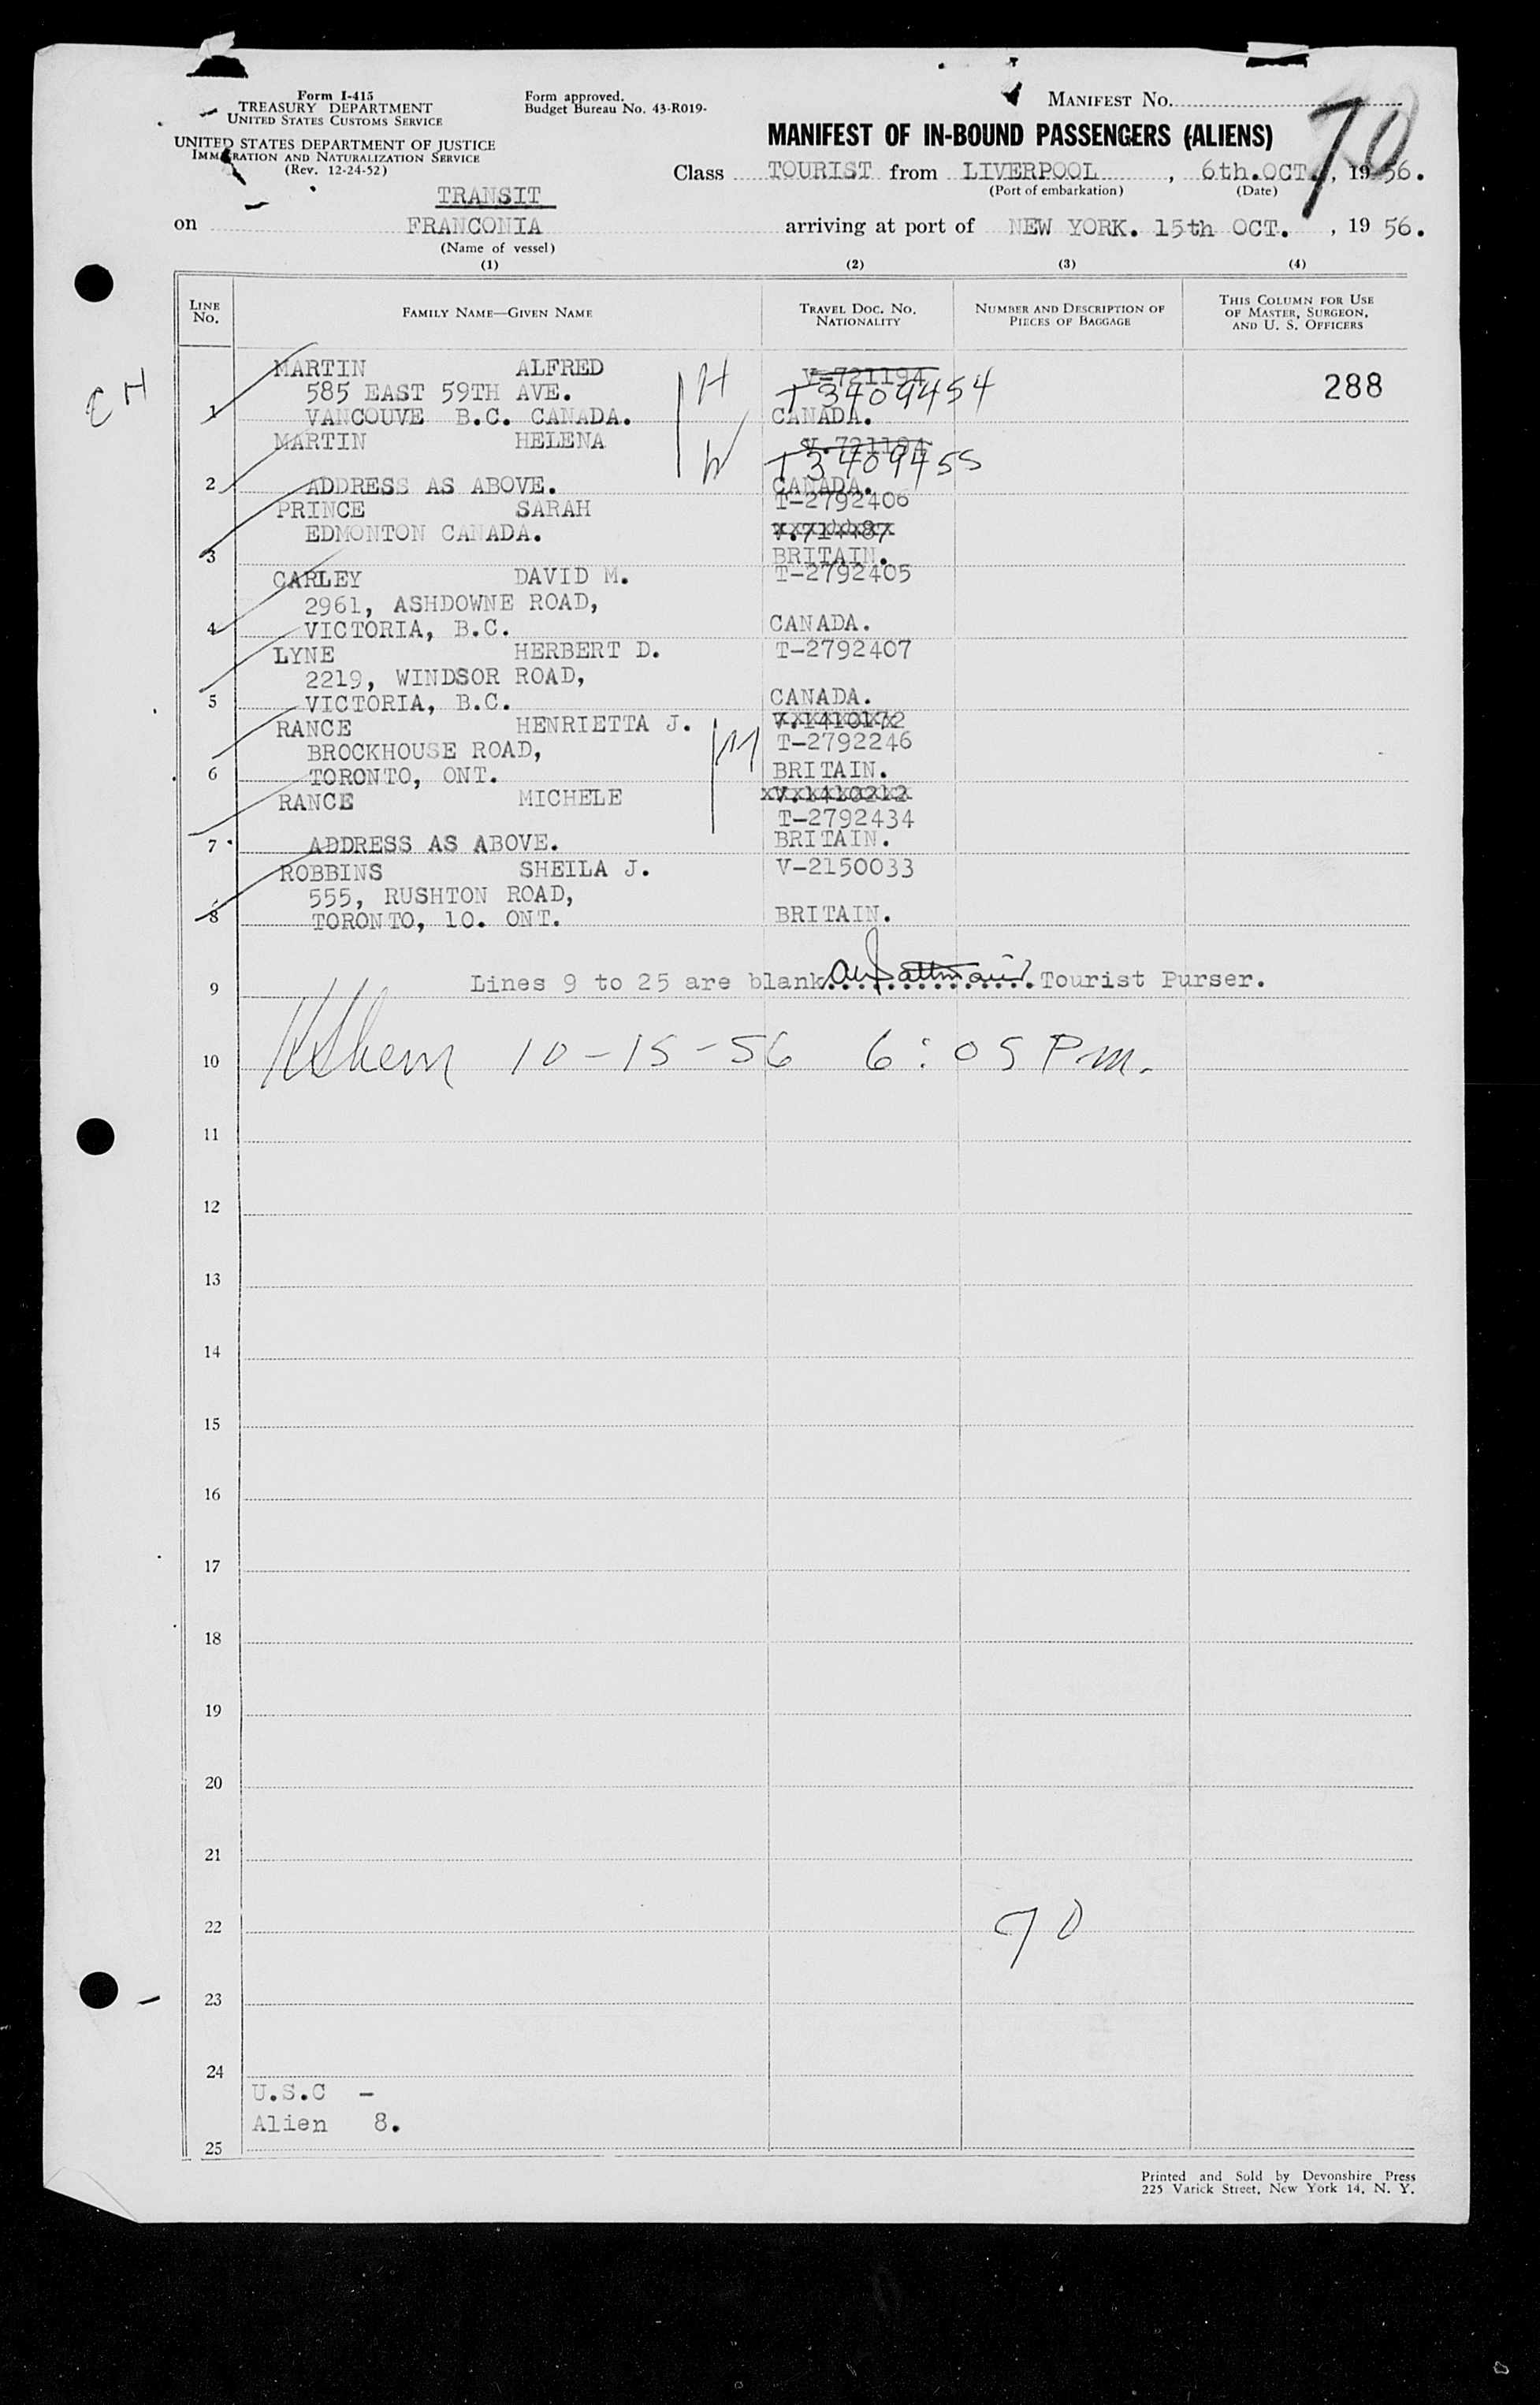 Form I-415
TREASURY DEPARTMENT
UNITED STATES CUSTOMS SERVICE
UNITED STATES DEPARTMENT OF JUSTICE
IMMIGRATION AND NATURALIZATION SERVICE
(Rev. 12-24-52)
Form approved.
Budget Bureau No. 43-R019-
MANIFEST No.
70
MANIFEST OF IN-BOUND PASSENGERS (ALIENS)
Class TOURIST from LIVERPOOL, 6th.OCT., 1956.
(Port of embarkation) (Date)
TRANSIT
on FRANCONIA arriving at port of NEW YORK. 15th OCT. , 19 56.
(Name of vessel)
(1) (2) (3) (4)
LINE No. FAMILY NAME—GIVEN NAME TRAVEL DOC. NO. NATIONALITY NUMBER AND DESCRIPTION OF PIECES OF BAGGAGE THIS COLUMN FOR USE OF MASTER, SURGEON, AND U. S. OFFICERS
MARTIN ALFRED H V-721194 288
585 EAST 59TH AVE. T3409454
1 VANCOUVE B.C. CANADA. CANADA.
MARTIN HELENA W V.721194
T3409455
2 ADDRESS AS ABOVE. CANADA.
PRINCE SARAH T-2792406
EDMONTON CANADA. V.714487
3 BRITAIN.
CARLEY DAVID M. T-2792405
2961, ASHDOWNE ROAD,
4 VICTORIA, B.C. CANADA.
LYNE HERBERT D. T-2792407
2219, WINDSOR ROAD,
5 VICTORIA, B.C. CANADA.
RANCE HENRIETTA J. M V.1410172
BROCKHOUSE ROAD, T-2792246
6 TORONTO, ONT. BRITAIN.
RANCE MICHELE V.1410212
T-2792434
7 ADDRESS AS ABOVE. BRITAIN.
ROBBINS SHEILA J. V-2150033
555, RUSHTON ROAD,
8 TORONTO, 10. ONT. BRITAIN.
9 Lines 9 to 25 are blank Tourist Purser.
10 10-15-56 6:05 P.m.
11
12
13
14
15
16
17
18
19
20
21
22 70
23
24
U.S.C -
Alien 8.
25
Printed and Sold by Devonshire Press
225 Varick Street, New York 14, N. Y.